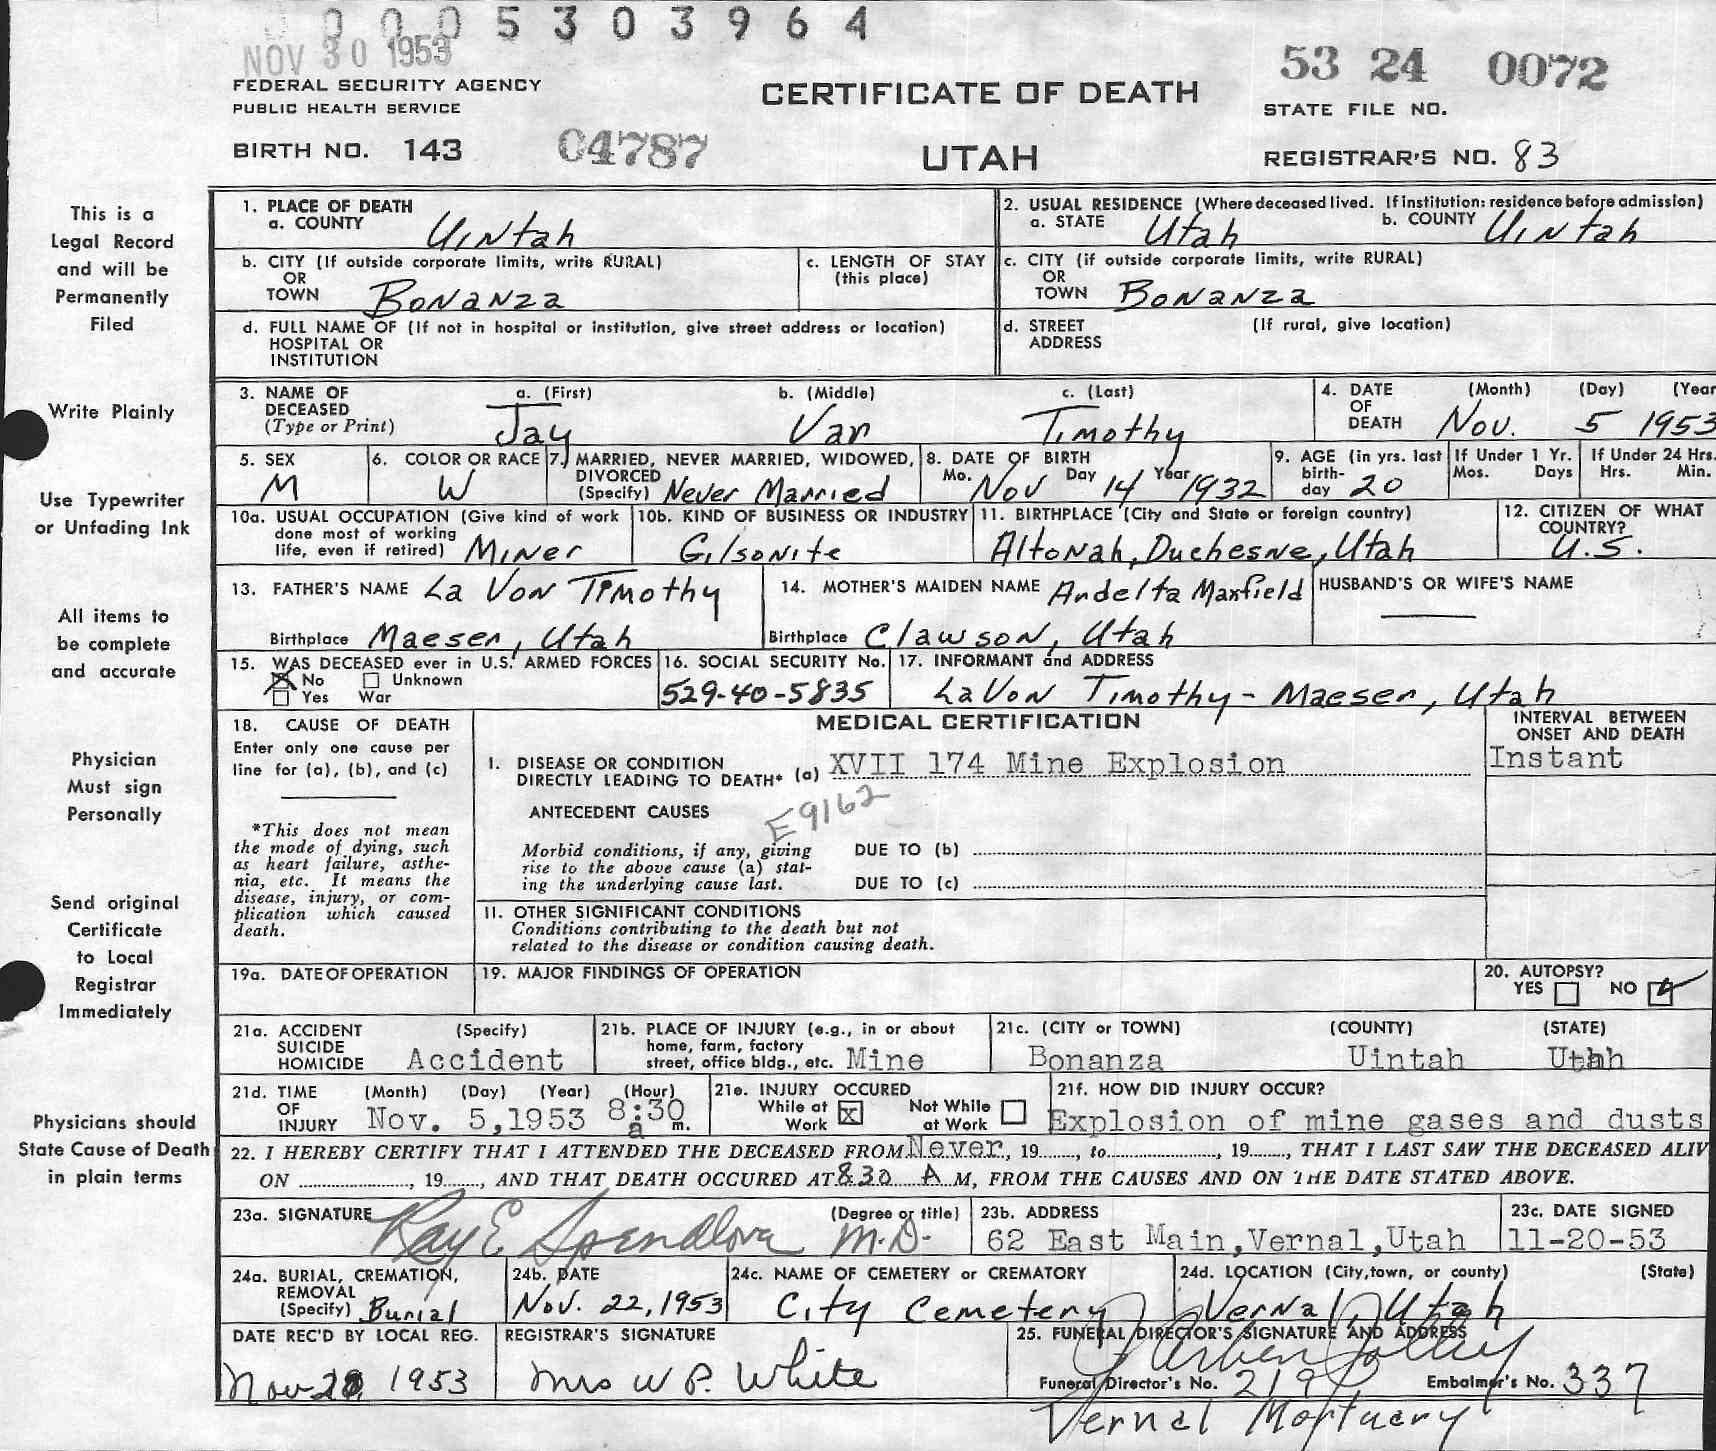 0 0 0 5 3 0 3 9 6 4
NOV 30 1953
FEDERAL SECURITY AGENCY
PUBLIC HEALTH SERVICE
BIRTH NO. 143 04787
CERTIFICATE OF DEATH
UTAH
53 24 0072
STATE FILE NO.
REGISTRAR'S NO. 83
This is a
Legal Record
and will be
Permanently
Filed
Write Plainly
Use Typewriter
or Unfading Ink
All items to
be complete
and accurate
Physician
Must sign
Personally
Send original
Certificate
to Local
Registrar
Immediately
Physicians should
State Cause of Death
in plain terms
1. PLACE OF DEATH
a. COUNTY Uintah
2. USUAL RESIDENCE (Where deceased lived. If institution: residence before admission)
a. STATE Utah b. COUNTY Uintah
b. CITY (If outside corporate limits, write RURAL)
OR
TOWN Bonanza
c. LENGTH OF STAY
(this place)
c. CITY (if outside corporate limits, write RURAL)
OR
TOWN Bonanza
d. FULL NAME OF (If not in hospital or institution, give street address or location)
HOSPITAL OR
INSTITUTION
d. STREET (If rural, give location)
ADDRESS
3. NAME OF a. (First) b. (Middle) c. (Last)
DECEASED
(Type or Print) Jay Van Timothy
4. DATE (Month) (Day) (Year
OF
DEATH Nov. 5 1953
5. SEX
M
6. COLOR OR RACE
W
7. MARRIED, NEVER MARRIED, WIDOWED,
DIVORCED
(Specify) Never Married
8. DATE OF BIRTH
Mo. Nov Day 14 Year 1932
9. AGE (in yrs. last
birth-
day 20
If Under 1 Yr.
Mos. Days
If Under 24 Hrs.
Hrs. Min.
10a. USUAL OCCUPATION (Give kind of work
done most of working
life, even if retired) Miner
10b. KIND OF BUSINESS OR INDUSTRY
Gilsonite
11. BIRTHPLACE (City and State or foreign country)
Altonah, Duchesne, Utah
12. CITIZEN OF WHAT
COUNTRY?
U.S.
13. FATHER'S NAME La Von Timothy
Birthplace Maeser, Utah
14. MOTHER'S MAIDEN NAME Ardelta Maxfield
Birthplace Clawson, Utah
HUSBAND'S OR WIFE'S NAME
15. WAS DECEASED ever in U.S. ARMED FORCES
No Unknown
Yes War
16. SOCIAL SECURITY No.
529-40-5835
17. INFORMANT and ADDRESS
LaVon Timothy - Maeser, Utah
18. CAUSE OF DEATH
Enter only one cause per
line for (a), (b), and (c)
*This does not mean
the mode of dying, such
as heart failure, asthe-
nia, etc. It means the
disease, injury, or com-
plication which caused
death.
MEDICAL CERTIFICATION
INTERVAL BETWEEN
ONSET AND DEATH
I. DISEASE OR CONDITION
DIRECTLY LEADING TO DEATH* (a) XVII 174 Mine Explosion
Instant
E9162
ANTECEDENT CAUSES
Morbid conditions, if any, giving
rise to the above cause (a) stat-
ing the underlying cause last.
DUE TO (b)
DUE TO (c)
11. OTHER SIGNIFICANT CONDITIONS
Conditions contributing to the death but not
related to the disease or condition causing death.
19a. DATE OF OPERATION
19. MAJOR FINDINGS OF OPERATION
20. AUTOPSY?
YES NO
21a. ACCIDENT (Specify)
SUICIDE
HOMICIDE Accident
21b. PLACE OF INJURY (e.g., in or about
home, farm, factory
street, office bldg., etc. Mine
21c. (CITY or TOWN) (COUNTY) (STATE)
Bonanza Uintah Utah
21d. TIME (Month) (Day) (Year) (Hour)
OF
INJURY Nov. 5,1953 8:30
a m.
21e. INJURY OCCURED
While at x Not While
Work at Work
21f. HOW DID INJURY OCCUR?
Explosion of mine gases and dusts
22. I HEREBY CERTIFY THAT I ATTENDED THE DECEASED FROM Never, 19....., to ....., 19....., THAT I LAST SAW THE DECEASED ALIV
ON ....., 19....., AND THAT DEATH OCCURED AT 830 A M, FROM THE CAUSES AND ON THE DATE STATED ABOVE.
23a. SIGNATURE (Degree or title)
Ray E Spendlove M.D.
23b. ADDRESS
62 East Main,Vernal,Utah
23c. DATE SIGNED
11-20-53
24a. BURIAL, CREMATION,
REMOVAL
(Specify) Burial
24b. DATE
Nov. 22, 1953
24c. NAME OF CEMETERY or CREMATORY
City Cemetery
24d. LOCATION (City,town, or county) (State)
Vernal, Utah
DATE REC'D BY LOCAL REG.
Nov 1953
REGISTRAR'S SIGNATURE
Mrs W P. White
25. FUNERAL DIRECTOR'S SIGNATURE AND ADDRESS
Funeral Director's No. 219 Embalmer's No. 337
Vernal Mortuary